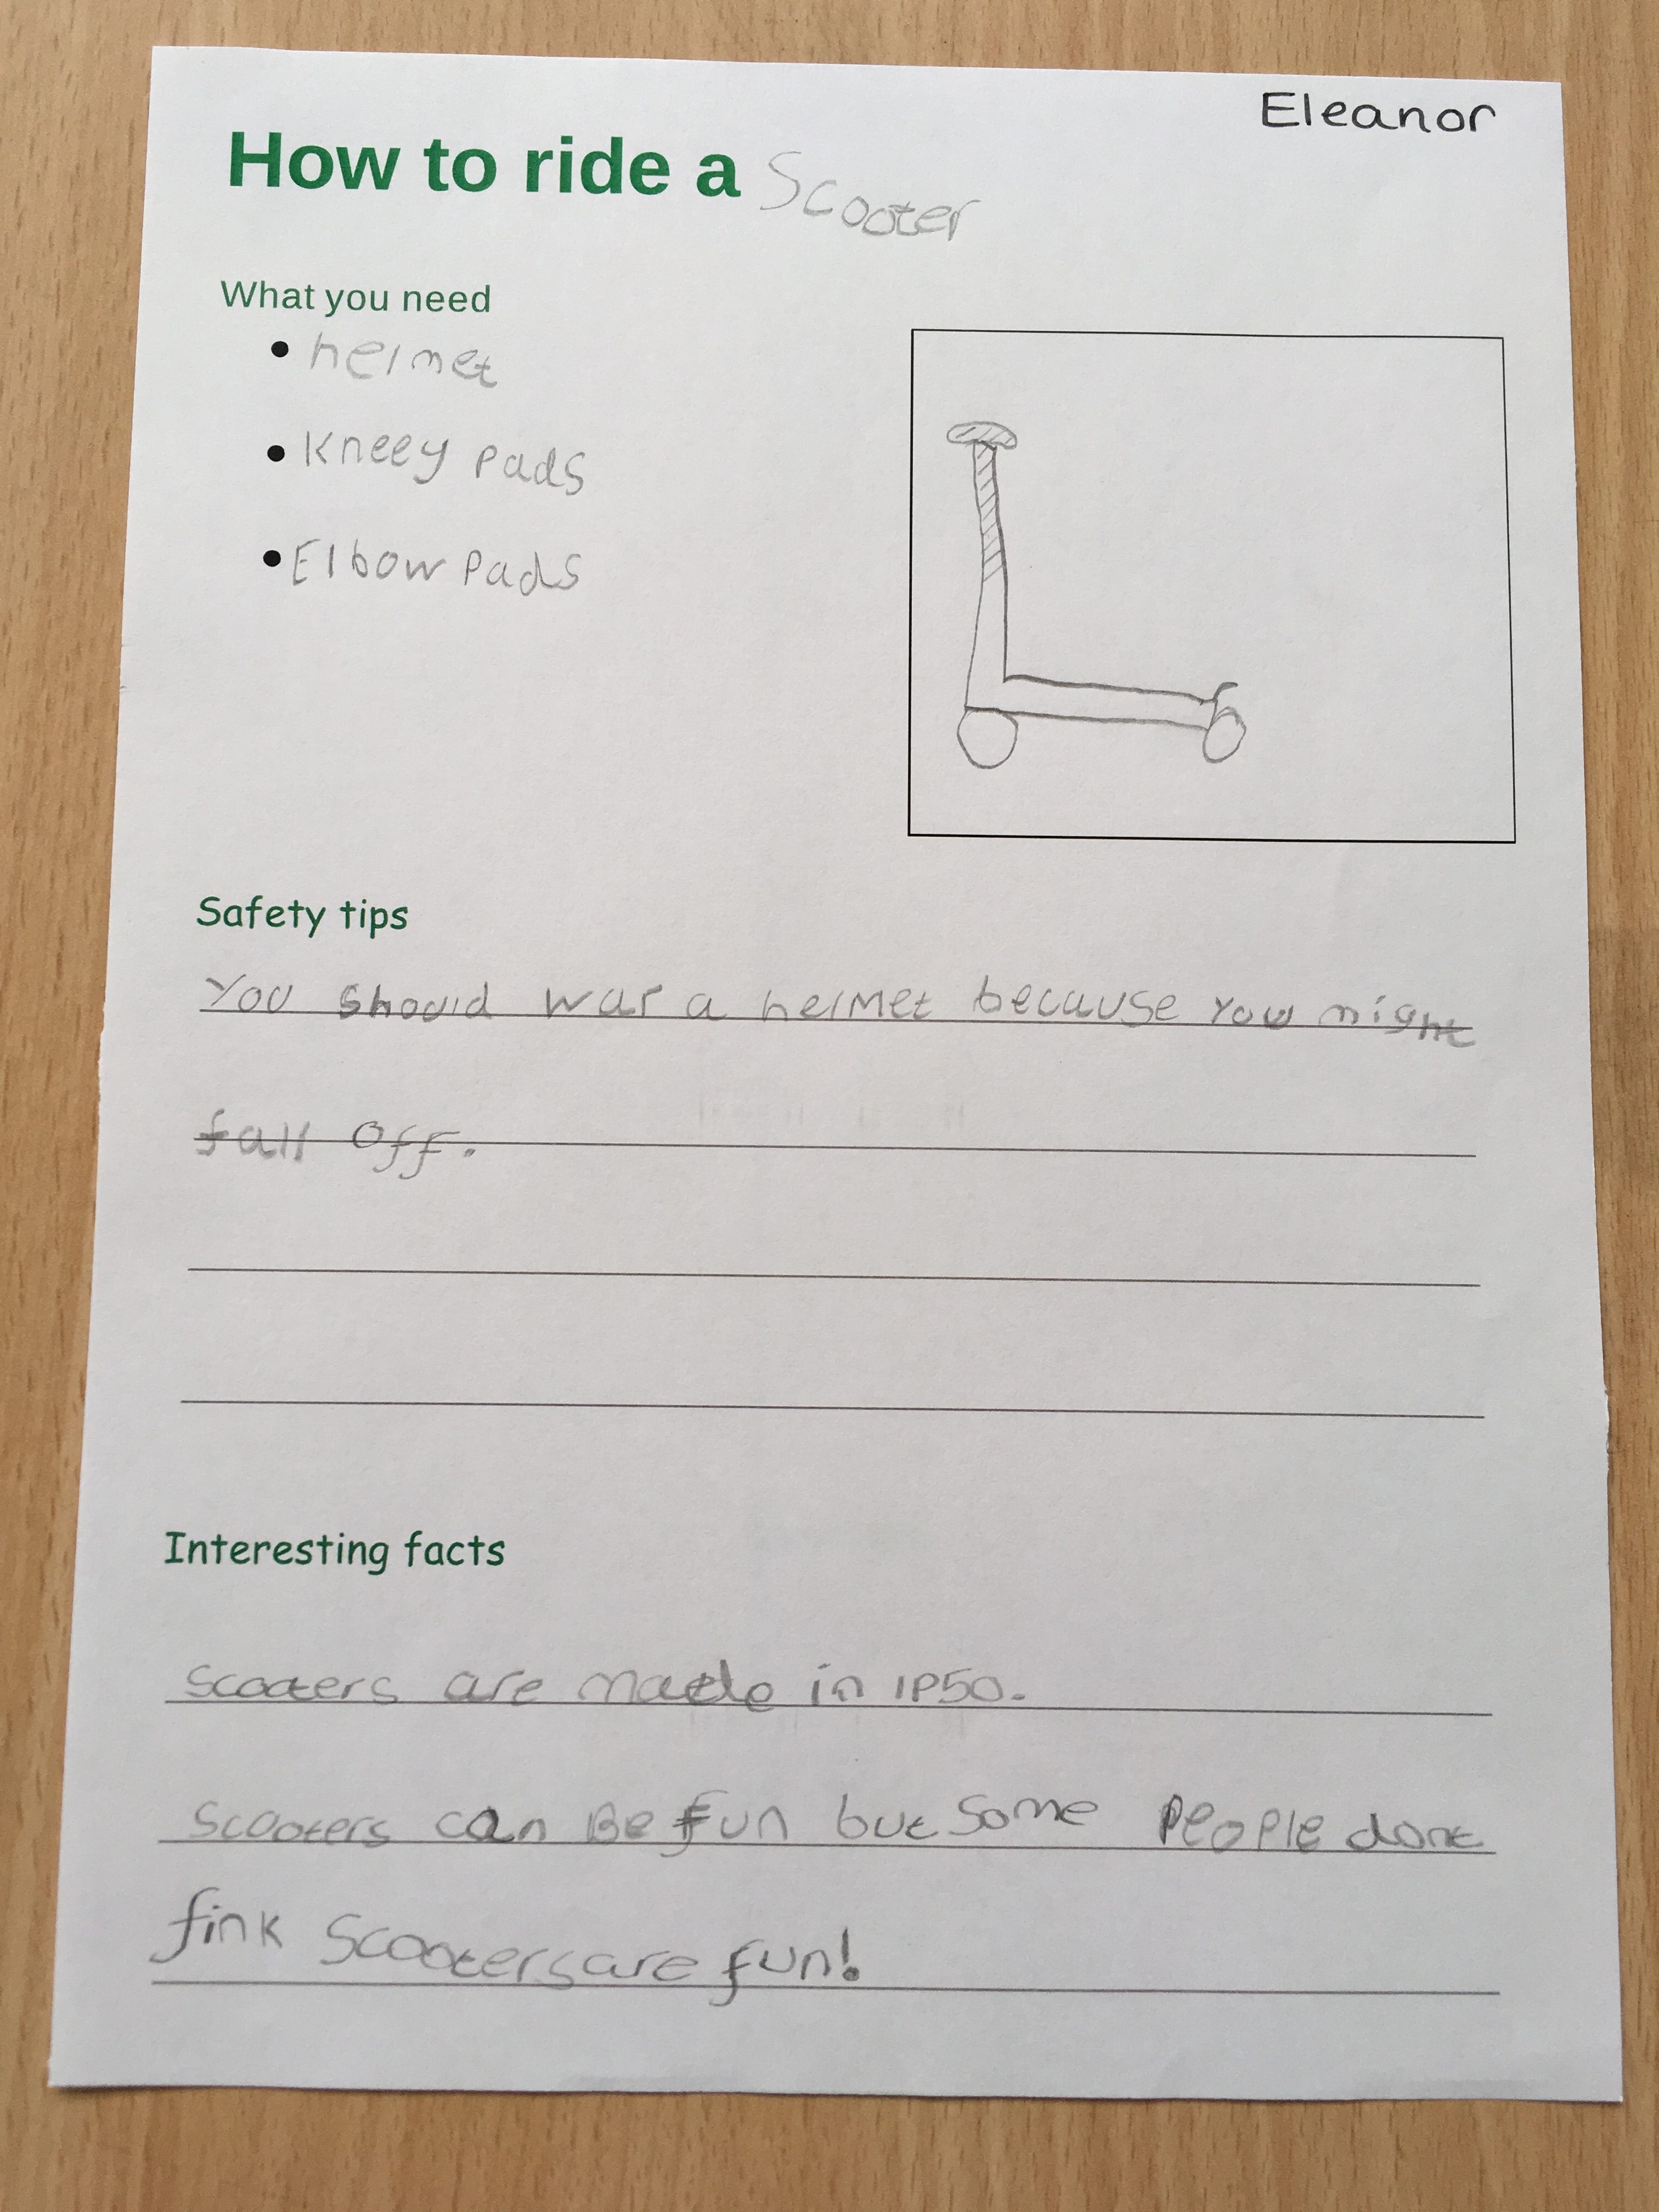 Eleanor
How to ride a Scooter
What you need
• helmet
• Kneey pads
• Elbow pads
Safety tips
You should war a helmet because you might
fall off.
Interesting facts
Scooters are made in 1950.
Scooters can Be fun but some people dont
fink Scooters are fun!